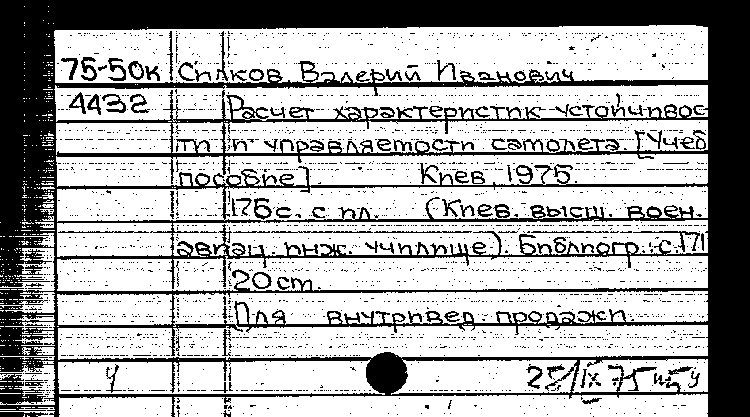 75-50к Силков, Валерий Иванович
4432 Расчет характеристик устойчивос-
ти и управляемости самолета. [Учеб.
пособие] Киев, 1975.
175 с. с ил. (Киев. высш. воен.
авиац. инж. училище). Библиогр.: с. 171
20 см.
Для внутривед. продажи.
Ч 25/IX 75